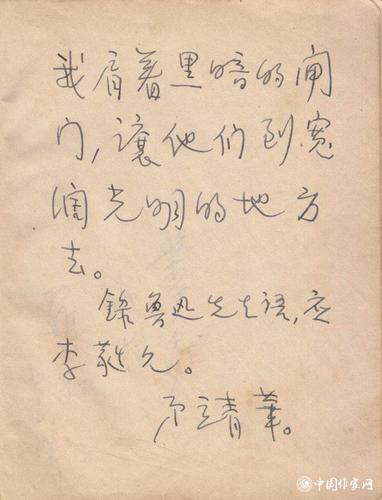 我肩着黑暗的闸
门,让他们到宽
阔光明的地方
去。
錄魯迅先生语,应
李蕤兄。
中国作家网